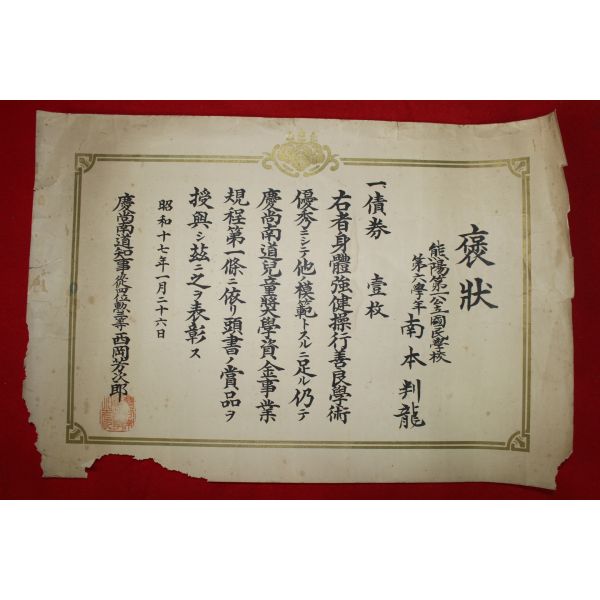 褒狀
熊陽第一公立國民學校
第六學年 南本判龍
一、債券 壹枚
右者身體強健操行善良學術
優秀ニシテ他ノ模範トスルニ足ル仍テ
慶尚南道兒童奬學資金事業
規程第一條ニ依リ頭書ノ賞品ヲ
授與シ玆ニ之ヲ表彰ス
昭和十七年一月二十六日
慶尚南道知事從四位勳三等西岡芳次郎